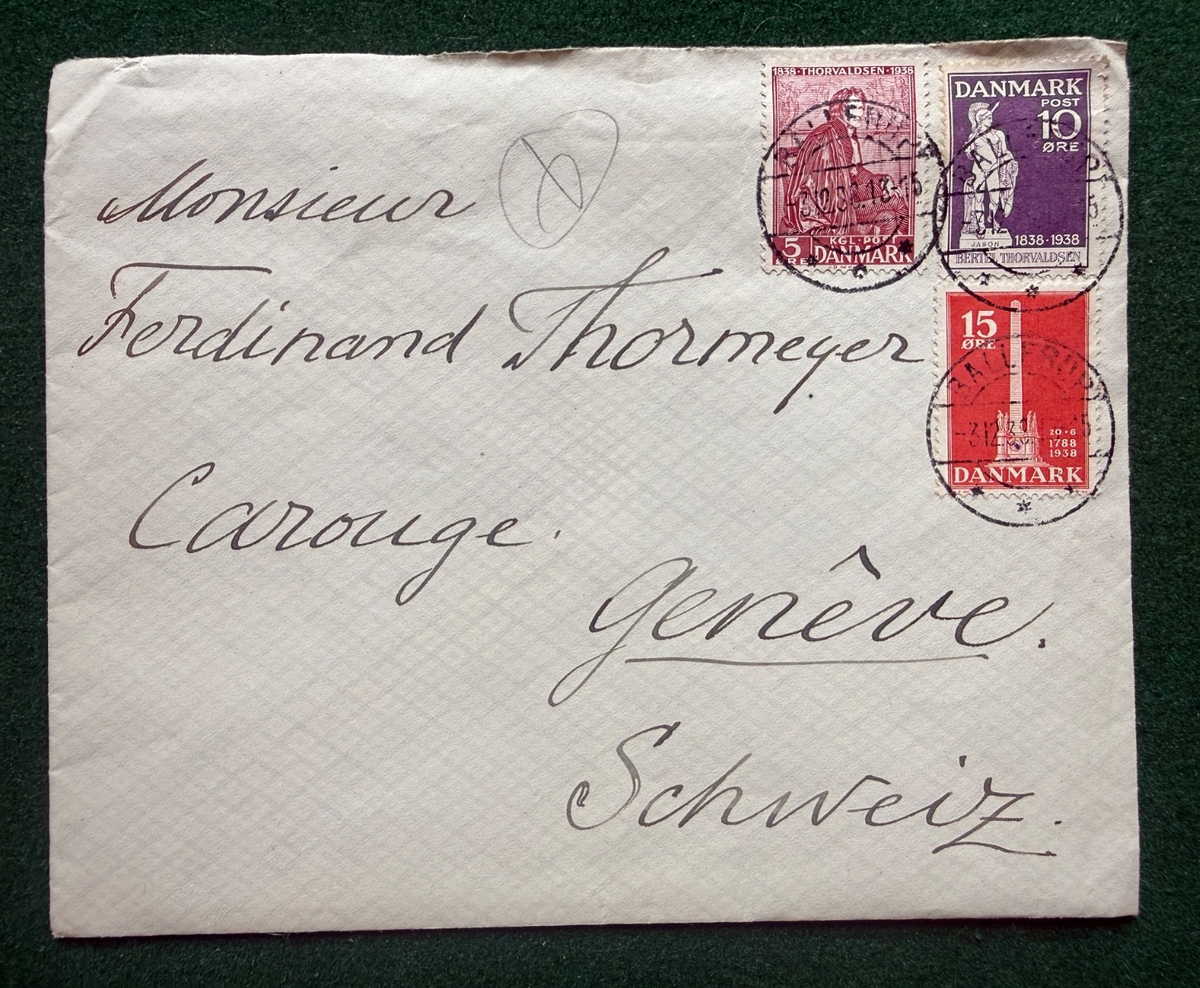 1838 · THORVALDSEN · 1938
5 ØRE
KGL · POST
DANMARK
DANMARK
POST
10
ØRE
JASON
1838 · 1938
BERTEL THORVALDSEN
15
ØRE
20 · 6
1788
1938
DANMARK
BALLERUP
BALLERUP
BALLERUP
Monsieur
Ferdinand Thormeyer
Carouge.
Genêve.
Schweiz.